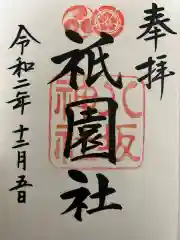 奉拝
八坂
神社
祇園社
令和二年十二月五日